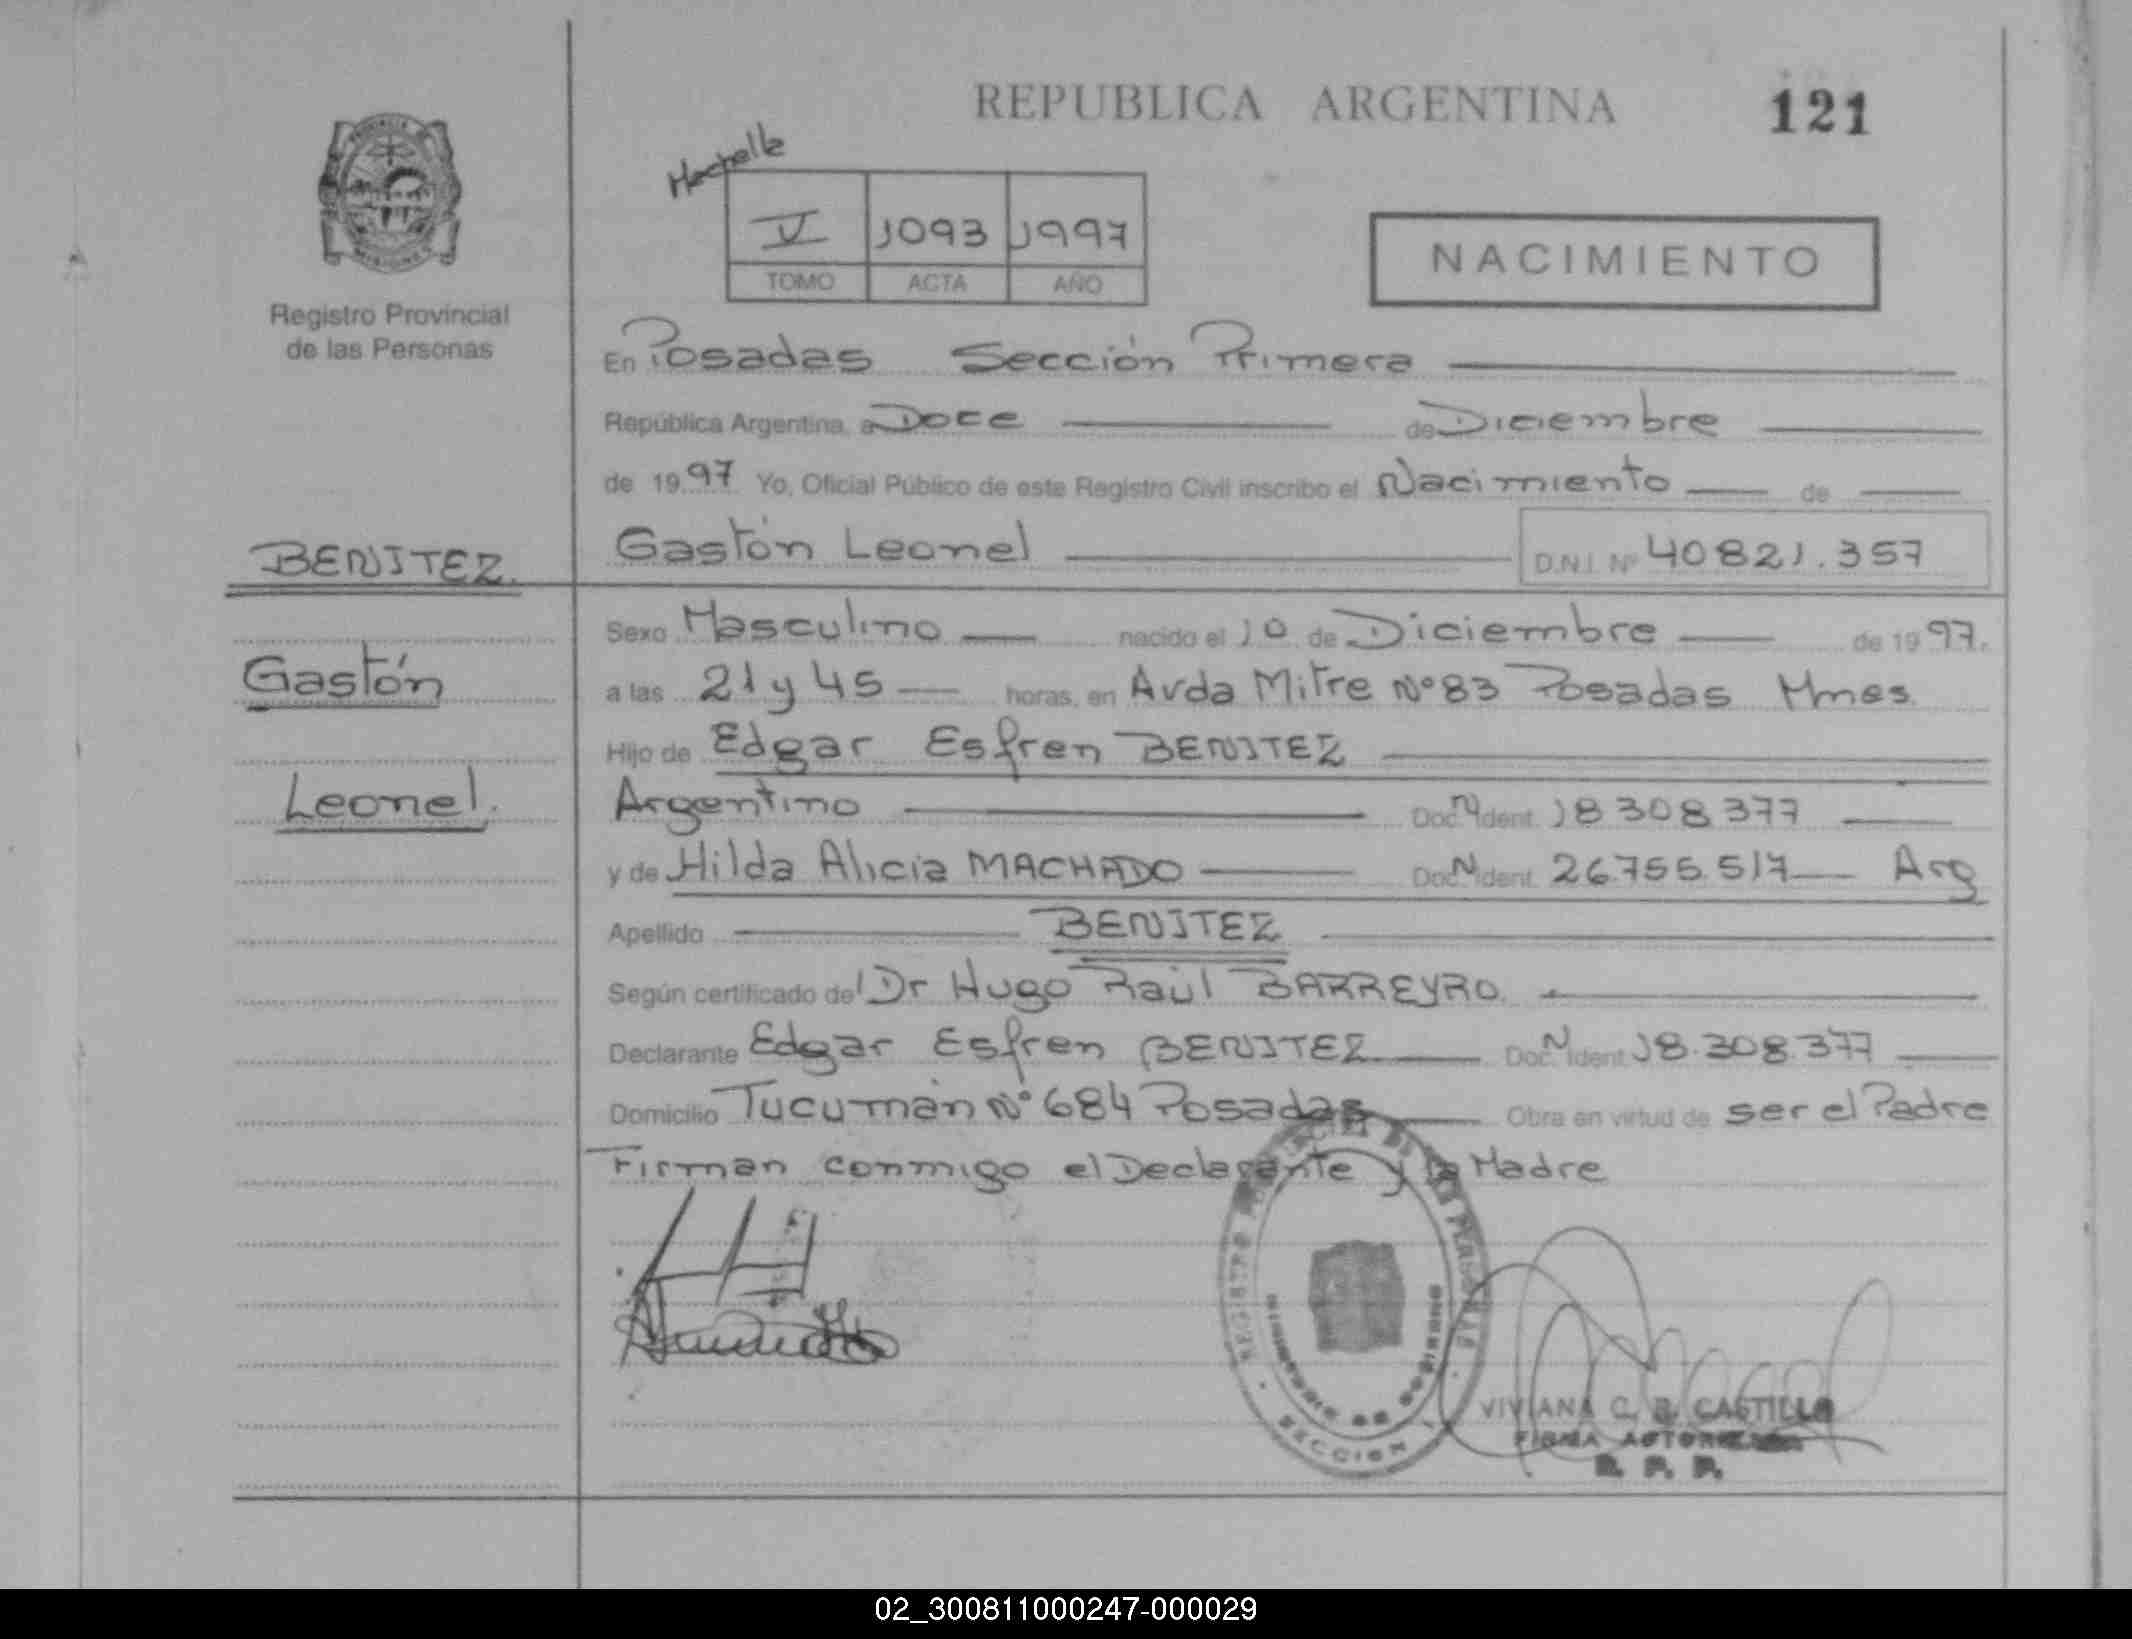 REPUBLICA ARGENTINA
121
PROVINCIA DE
MISIONES
Registro Provincial
de las Personas
V 1093 1997
TOMO ACTA AÑO
NACIMIENTO
En Posadas Sección Primera
República Argentina, a Doce de Diciembre
de 1997 Yo, Oficial Público de este Registro Civil inscribo el Nacimiento de
BENITEZ
Gastón Leonel D.N.I. Nº 40821.357
Sexo Masculino nacido el 10 de Diciembre de 1997.
Gastón
a las 21 y 45 horas, en Avda Mitre Nº 83 Posadas Mnes
Hijo de Edgar Esfren BENITEZ
Leonel.
Argentino Doc. N Ident. 18308377
y de Hilda Alicia MACHADO Doc. N Ident. 26.755.517 Arg
Apellido BENITEZ
Según certificado del Dr Hugo Raúl BARREYRO
Declarante Edgar Esfren BENITEZ Doc. N Ident. 18.308.377
Domicilio Tucumán Nº 684 Posadas Obra en virtud de ser el Padre
Firman conmigo el Declarante y la Madre
REGISTRO PROVINCIAL DE LAS PERSONAS
MINISTERIO DE GOBIERNO
SECCION 1
VIVIANA C. B. CASTILLO
FIRMA AUTORIZADA
R. P. P.
02_300811000247-000029